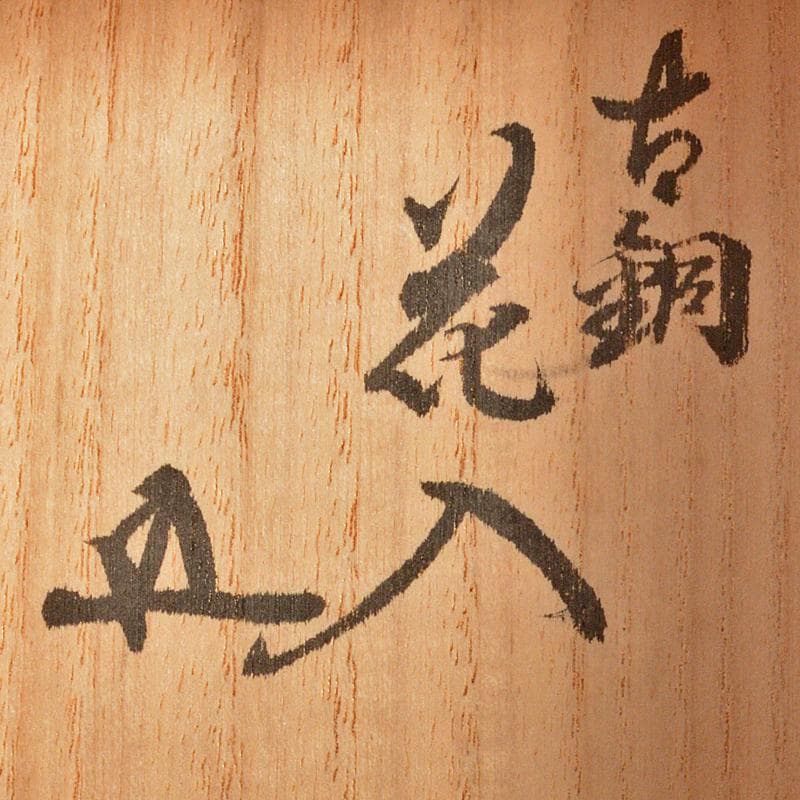 古銅
花入